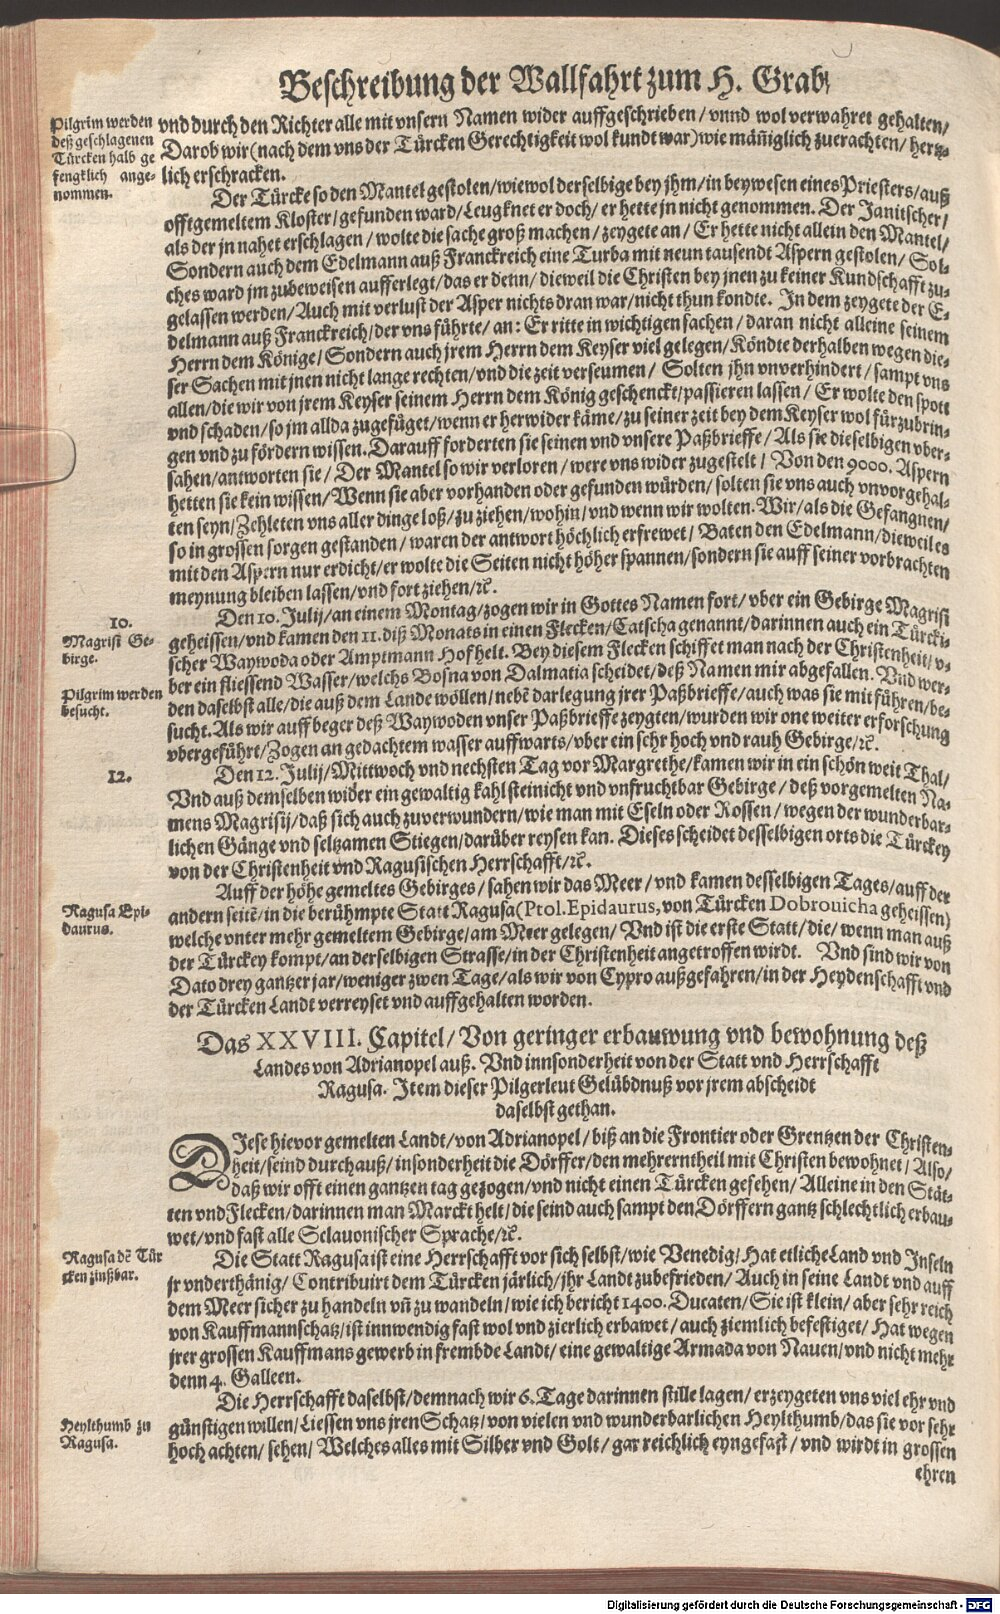 Beschreibung der Wallfahrt zum H. Grab/
Pilgrim werden
deß geschlagenen
Türcken halb ge
fengklich ange-
nommen.
vnd durch den Richter alle mit vnsern Namen wider auffgeschrieben / vnnd wol verwahret gehalten/
Darob wir (nach dem vns der Türcken Gerechtigkeit wol kundt war) wie mäñiglich zuerachten / hertz-
lich erschracken.
Der Türcke so den Mantel gestolen / wiewol derselbige bey jhm / in beywesen eines Priesters / auß
offtgemeltem Kloster / gefunden ward / Leugknet er doch / er hette jn nicht genommen. Der Janitscher /
als der jn nahet erschlagen / wolte die sache groß machen / zeygete an / Er hette nicht allein den Mantel /
Sondern auch dem Edelmann auß Franckreich eine Turba mit neun tausendt Aspern gestolen / Sol-
ches ward jm zubeweisen aufferlegt / das er denn / dieweil die Christen bey jnen zu keiner Kundschafft zu-
gelassen werden / Auch mit verlust der Asper nichts dran war / nicht thun kondte. In dem zeygete der E-
delmann auß Franckreich / der vns führte / an: Er ritte in wichtigen sachen / daran nicht alleine seinem
Herrn dem Könige / Sondern auch jrem Herrn dem Keyser viel gelegen / Köndte derhalben wegen die-
ser Sachen mit jnen nicht lange rechten / vnd die zeit verseumen / Solten jhn vnverhindert / sampt vns
allen / die wir von jrem Keyser seinem Herrn dem König geschenckt / passieren lassen / Er wolte den spott
vnd schaden / so jm allda zugefüget / wenn er herwider käme / zu seiner zeit bey dem Keyser wol fürzubrin-
gen vnd zu fördern wissen. Darauff forderten sie seinen vnd vnsere Paßbrieffe / Als sie dieselbigen vber-
sahen / antworten sie / Der Mantel so wir verloren / were vns wider zugestelt / Von den 9000. Aspern
hetten sie kein wissen / Wenn sie aber vorhanden oder gefunden würden / solten sie vns auch vnvorgehal-
ten seyn / Zehleten vns aller dinge loß / zu ziehen / wohin / vnd wenn wir wolten. Wir / als die Gefangnen /
so in grossen sorgen gestanden / waren der antwort höchlich erfrewet / Baten den Edelmann / dieweil es
mit den Aspern nur erdicht / er wolte die Seiten nicht höher spannen / sondern sie auff seiner vorbrachten
meynung bleiben lassen / vnd fort ziehen / ꝛc.
10.
Magrisi Ge-
birge.
Den 10. Julij / an einem Montag / zogen wir in Gottes Namen fort / vber ein Gebirge Magrisi
geheissen / vnd kamen den 11. diß Monats in einen Flecken / Catscha genannt / darinnen auch ein Türcki-
scher Waywoda oder Amptmann Hof helt. Bey diesem Flecken schiffet man nach der Christenheit / v-
ber ein fliessend Wasser / welchs Bosna von Dalmatia scheidet / deß Namen mir abgefallen. Vnd wer-
Pilgrim werden
besucht.
den daselbst alle / die auß dem Lande wöllen / nebẽ darlegung jrer Paßbrieffe / auch was sie mit führen / be-
sucht. Als wir auff beger deß Waywoden vnser Paßbrieffe zeygten / wurden wir one weiter erforschung
vbergeführt / Zogen an gedachtem wasser auffwarts / vber ein sehr hoch vnd rauh Gebirge / ꝛc.
12.
Den 12. Julij / Mittwoch vnd nechsten Tag vor Margrethe / kamen wir in ein schön weit Thal /
Vnd auß demselben wider ein gewaltig kahl steinicht vnd vnfruchtbar Gebirge / deß vorgemelten Na-
mens Magrisij / daß sich auch zuverwundern / wie man mit Eseln oder Rossen / wegen der wunderbar-
lichen Gänge vnd seltzamen Stiegen / darüber reysen kan. Dieses scheidet desselbigen orts die Türckey
von der Christenheit vnd Ragusischen Herrschafft / ꝛc.
Auff der höhe gemeltes Gebirges / sahen wir das Meer / vnd kamen desselbigen Tages / auff der
Ragusa Epi-
daurus.
andern seitẽ / in die berühmpte Statt Ragusa (Ptol. Epidaurus, von Türcken Dobrouicha geheissen)
welche vnter mehr gemeltem Gebirge / am Meer gelegen / Vnd ist die erste Statt / die / wenn man auß
der Türckey kompt / an derselbigen Strasse / in der Christenheit angetroffen wirdt. Vnd sind wir von
Dato drey gantzer jar / weniger zwen Tage / als wir von Cypro außgefahren / in der Heydenschafft vnd
der Türcken Landt verreyset vnd auffgehalten worden.
Das XXVIII. Capitel / Von geringer erbauwung vnd bewohnung deß
Landes von Adrianopel auß. Vnd innsonderheit von der Statt vnd Herrschafft
Ragusa. Item dieser Pilgerleut Gelübdnuß vor jrem abscheidt
daselbst gethan.
DJese hievor gemelten Landt / von Adrianopel / biß an die Frontier oder Grentzen der Christen-
heit / seind durchauß / insonderheit die Dörffer / den mehrerntheil mit Christen bewohnet / Also /
daß wir offt einen gantzen tag gezogen / vnd nicht einen Türcken gesehen / Alleine in den Stät-
ten vnd Flecken / darinnen man Marckt helt / die seind auch sampt den Dörffern gantz schlechtlich erbau-
wet / vnd fast alle Sclauonischer Sprache / ꝛc.
Ragusa dẽ Tür
cken zinßbar.
Die Statt Ragusa ist eine Herrschafft vor sich selbst / wie Venedig / Hat etliche Land vnd Inseln
jr vnderthänig / Contribuirt dem Türcken järlich / jhr Landt zubefrieden / Auch in seine Landt vnd auff
dem Meer sicher zu handeln vñ zu wandeln / wie ich bericht 1400. Ducaten / Sie ist klein / aber sehr reich
von Kauffmannschatz / ist innwendig fast wol vnd zierlich erbawet / auch ziemlich befestiget / Hat wegen
jrer grossen Kauffmans gewerb in frembde Landt / eine gewaltige Armada von Nauen / vnd nicht mehr
denn 4. Galleen.
Die Herrschafft daselbst / demnach wir 6. Tage darinnen stille lagen / erzeygeten vns viel ehr vnd
Heylthumb zu
Ragusa.
günstigen willen / Liessen vns jren Schatz / von vielen vnd wunderbarlichen Heylthumb / das sie vor sehr
hoch achten / sehen / Welches alles mit Silber vnd Golt / gar reichlich eyngefaßt / vnd wirdt in grossen
ehren
Digitalisierung gefördert durch die Deutsche Forschungsgemeinschaft - DFG